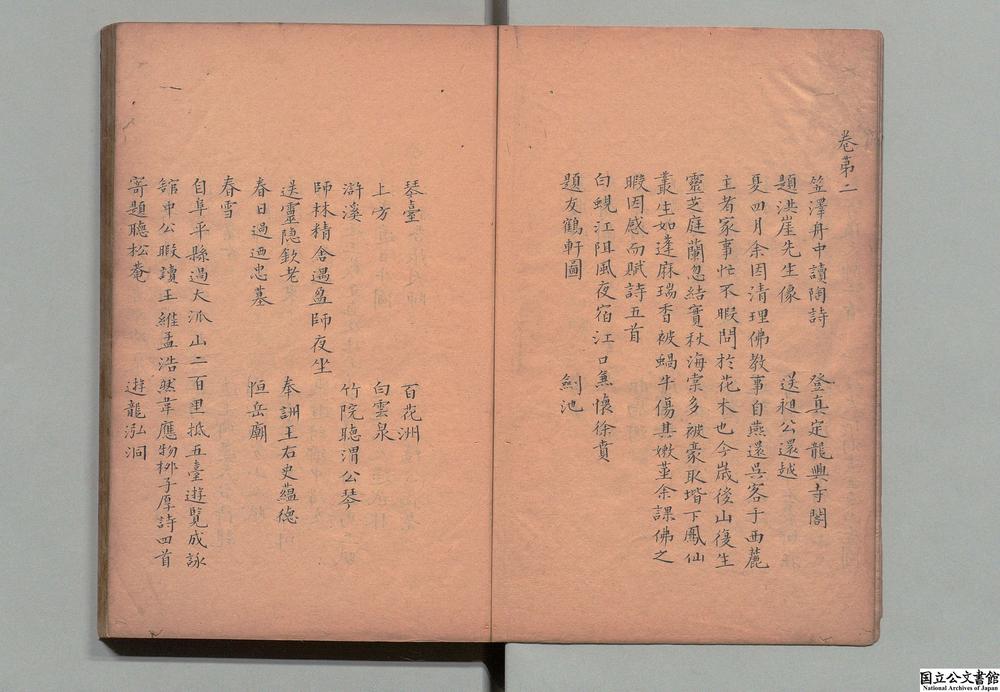 卷第二
笠澤舟中讀陶詩　登真定龍興寺閣
題洪崖先生像　送昶公還越
夏四月余因清理佛教事自燕還吳客于西麓
主者家事忙不暇問於花木也今歲後山復生
靈芝庭蘭忽結實秋海棠多被豪取堦下鳳仙
叢生如蓬麻瑞香被蝸牛傷其嫩葉余課佛之
暇因感而賦詩五首
白蜆江阻風夜宿江口無懷徐賁
題友鶴軒圖　劍池
琴臺　百花洲
上方　白雲泉
滸溪　竹院聽渭公琴
師林精舍過孟師夜坐
送靈隐欽老　奉訓王右史蘊德
春日過迺忠墓　恒岳廟
春雪
自阜平縣過大派山二百里抵五臺遊覽成詠
舘中公暇讀王維孟浩然韋應物栁子厚詩四首
寄題聽松菴　遊龍泓洞
国立公文書館
National Archives of Japan